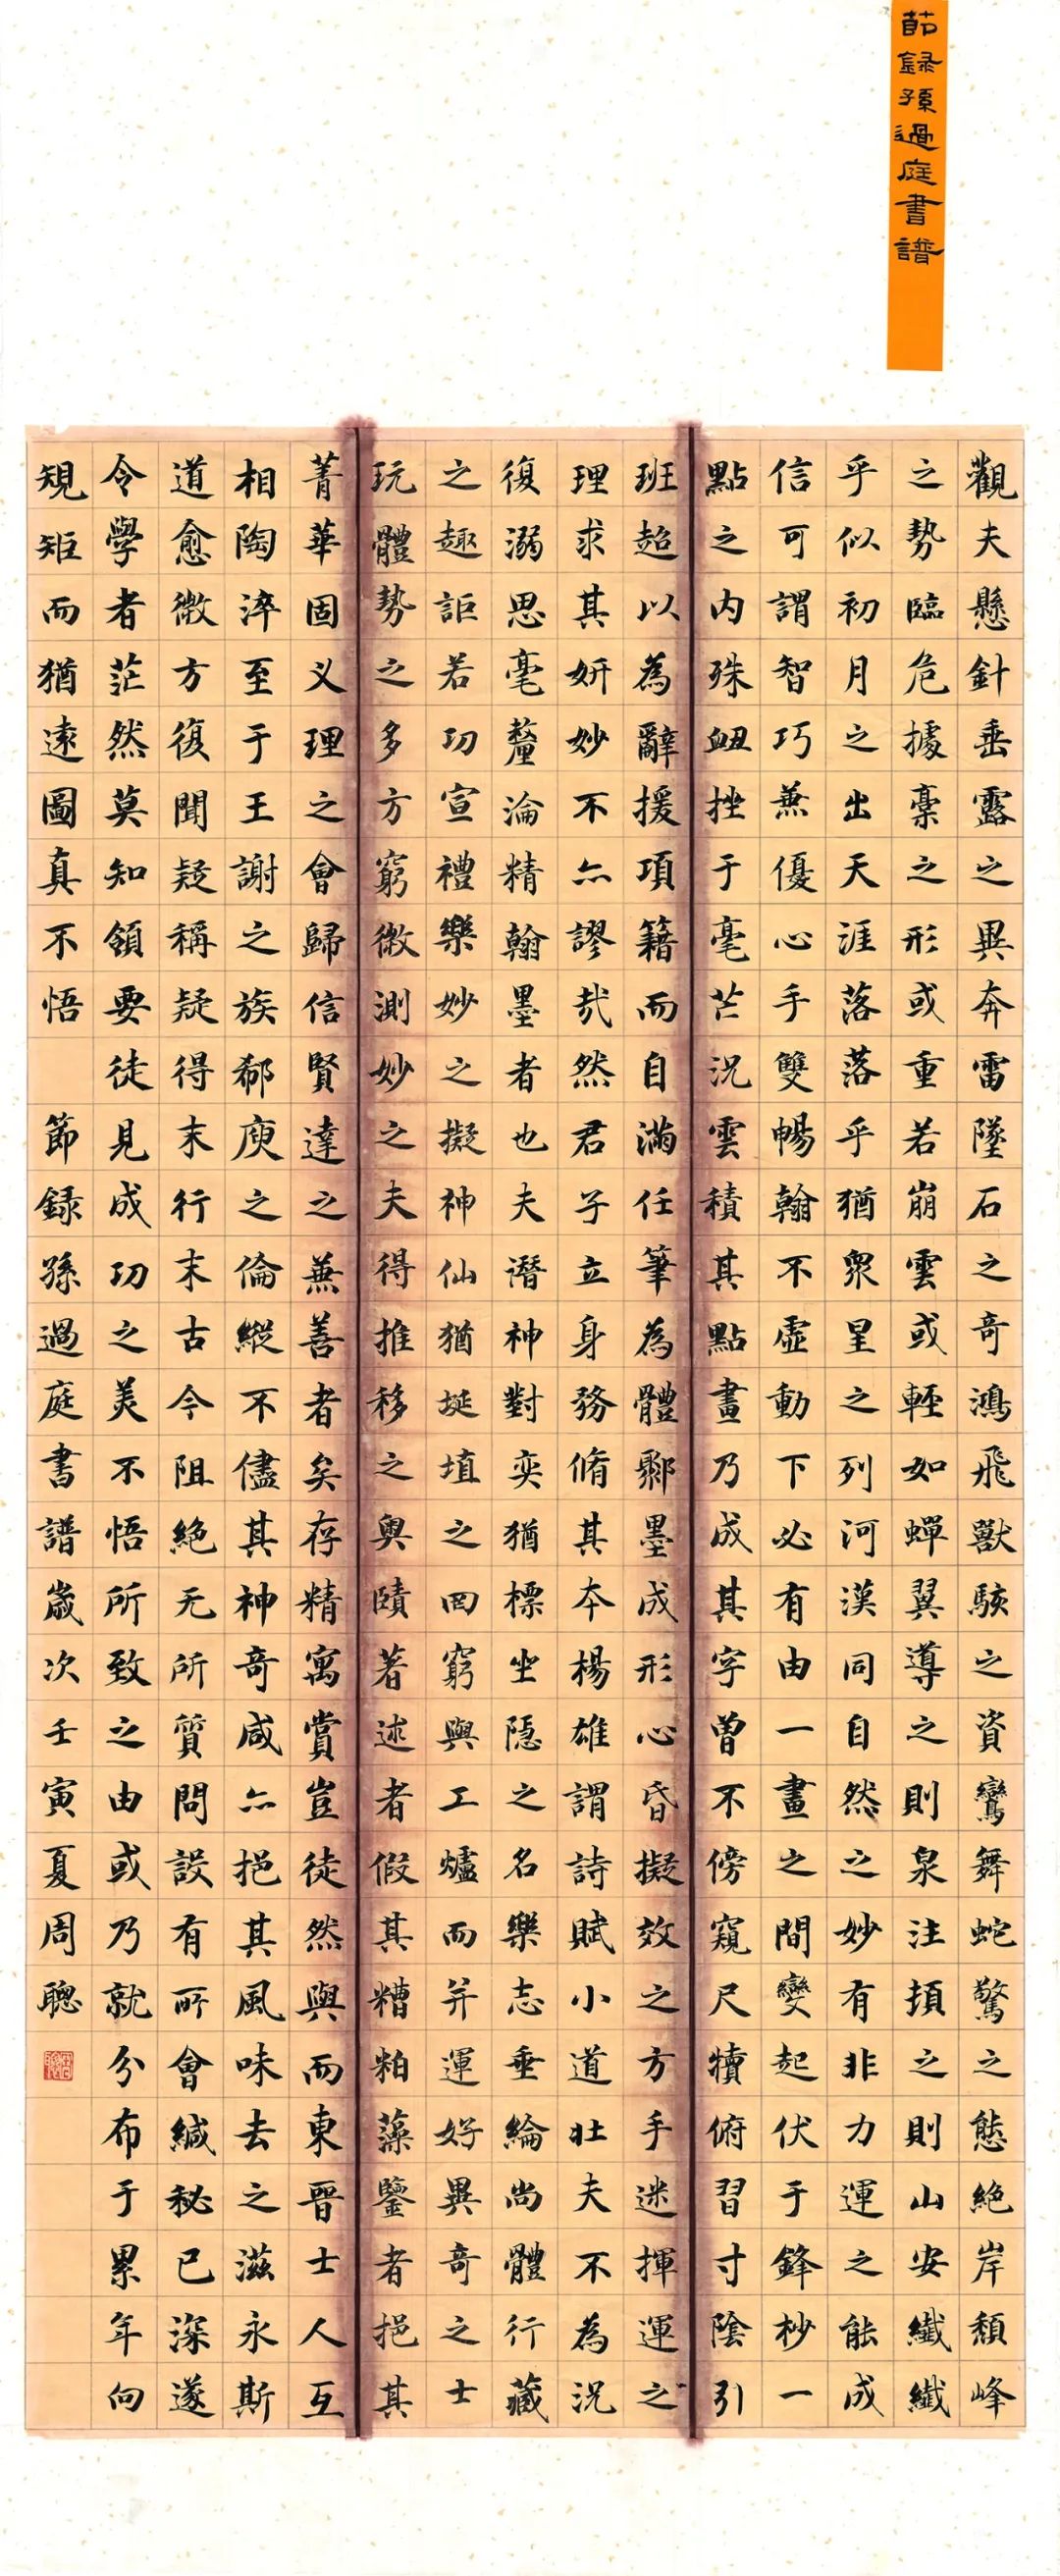 節録孫過庭書譜
觀夫懸針垂露之異奔雷墜石之奇鴻飛獸駭之資鸞舞蛇驚之態絕岸頹峰
之勢臨危據槀之形或重若崩雲或輕如蟬翼導之則泉注頓之則山安纖纖
乎似初月之出天涯落落乎猶眾星之列河漢同自然之妙有非力運之能成
信可謂智巧兼優心手雙暢翰不虛動下必有由一畫之間變起伏于鋒杪一
點之內殊衄挫于毫芒況雲積其點畫乃成其字曾不傍窺尺牘俯習寸陰引
班超以為辭援項籍而自滿任筆為體聚墨成形心昏擬效之方手迷揮運之
理求其妍妙不亦謬哉然君子立身務脩其本楊雄謂詩賦小道壯夫不為況
復溺思毫釐淪精翰墨者也夫潛神對奕猶標坐隱之名樂志垂綸尚體行藏
之趣詎若功宣禮樂妙之擬神仙猶埏埴之罔窮與工爐而并運好異奇之士
玩體勢之多方窮微測妙之夫得推移之奧賾著述者假其糟粕藻鑒者挹其
菁華固义理之會歸信賢達之兼善者矣存精寓賞豈徒然與而東晉士人互
相陶淬至于王謝之族郗庾之倫縱不儘其神奇咸亦挹其風味去之滋永斯
道愈微方復聞疑稱疑得末行末古今阻絕无所質問設有所會緘秘已深遂
令學者茫然莫知領要徒見成功之美不悟所致之由或乃就分布于累年向
規矩而猶遠圖真不悟 節録孫過庭書譜歲次壬寅夏周聰